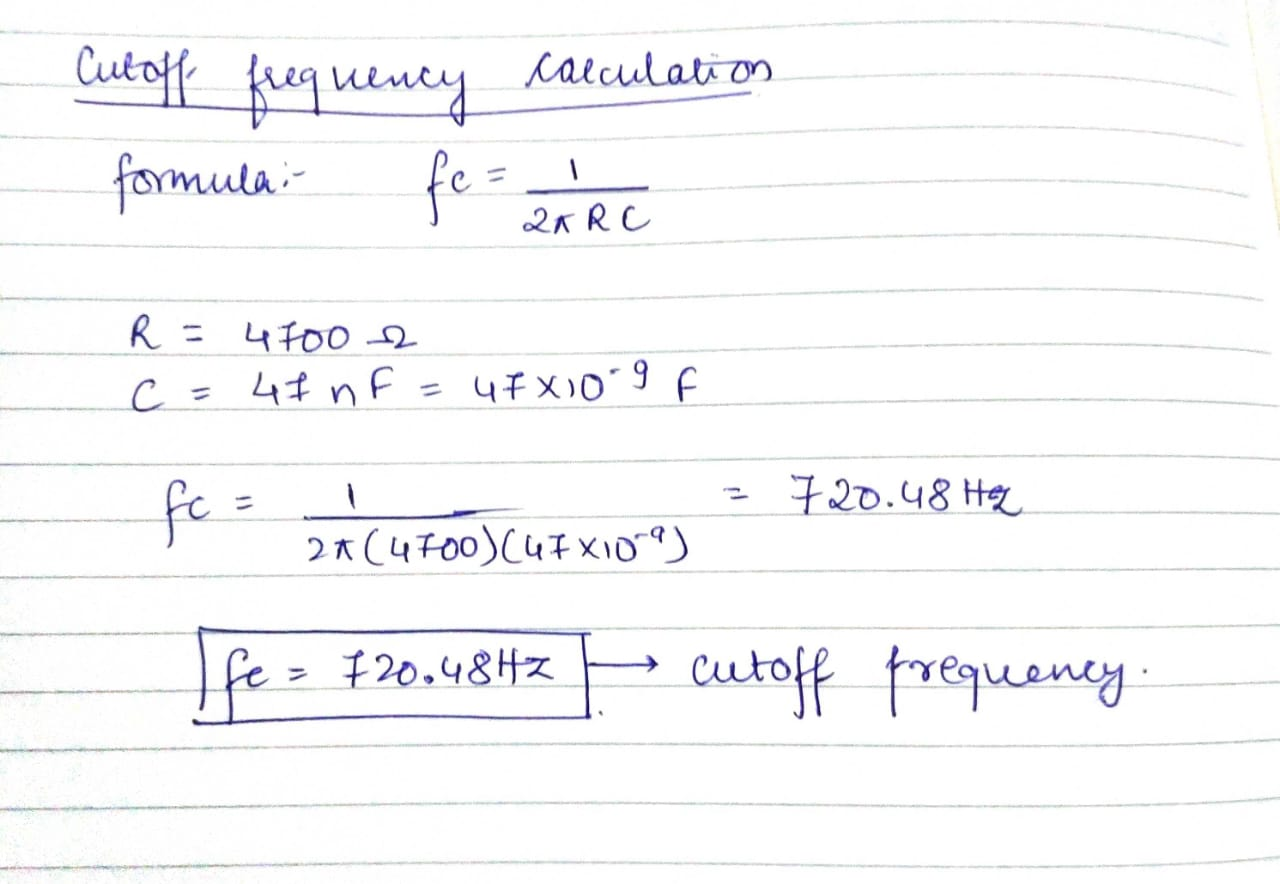 Cutoff frequency calculation
formula:- fc = 1 / 2π R C
R = 4700 Ω
C = 47 nF = 47 x 10⁻⁹ F
fc = 1 / 2π (4700)(47 x 10⁻⁹) = 720.48 Hz
fc = 720.48 Hz → cutoff frequency.